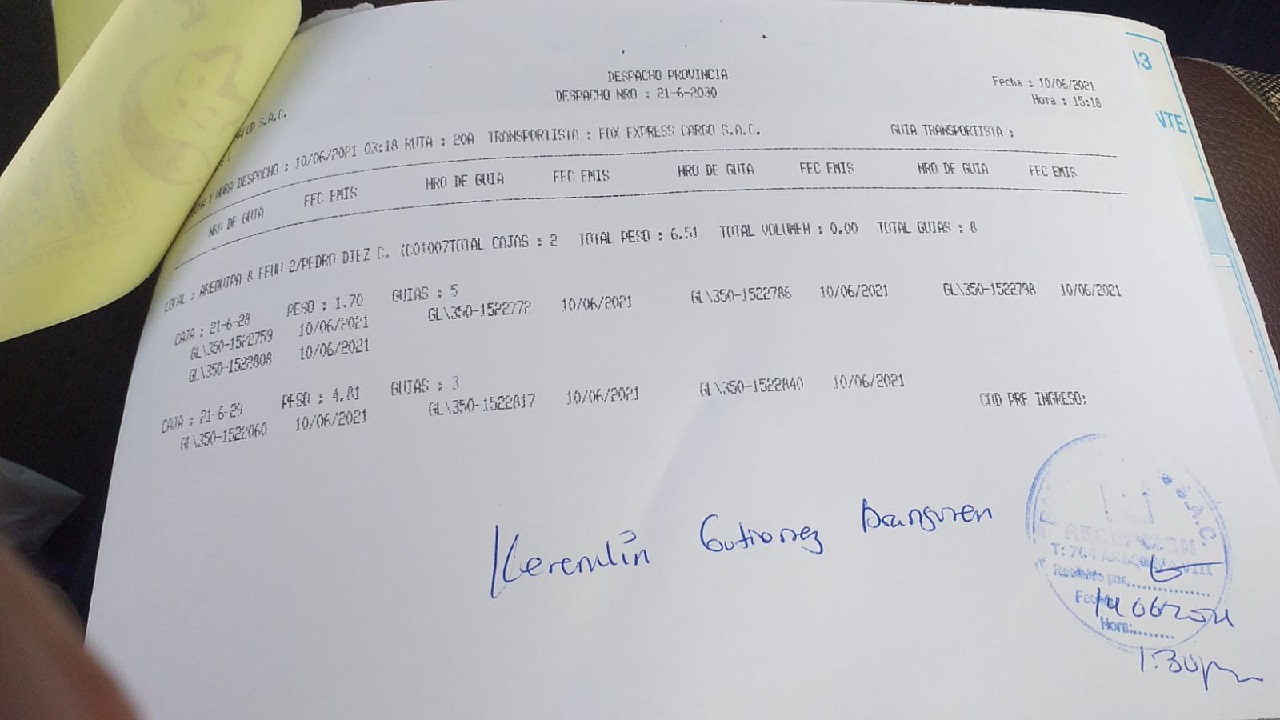 DESPACHO PROVINCIA
DESPACHO NRO : 21-6-2030
Fecha : 10/06/2021
Hora : 15:18
S.A.C.
DESPACHO : 10/06/2021 03:18 RUTA : 20A TRANSPORTISTA : FOX EXPRESS CARGO S.A.C. GUIA TRANSPORTISTA :
NRO DE GUIA FEC EMIS NRO DE GUIA FEC EMIS NRO DE GUIA FEC EMIS NRO DE GUIA FEC EMIS
LOCAL : AREQUIPA 8 2/PEDRO DIEZ C. TOTAL CAJAS : 2 TOTAL PESO : 6.51 TOTAL VOLUMEN : 0.00 TOTAL GUIAS : 8
CAJA : 21-6-28 PESO : 1.70 GUIAS : 5
GL\350-1522759 10/06/2021 GL\350-1522772 10/06/2021 GL\350-1522786 10/06/2021 GL\350-1522798 10/06/2021
GL\350-1522808 10/06/2021
CAJA : 21-6-29 PESO : 4.81 GUIAS : 3
10/06/2021 GL\350-1522817 10/06/2021 GL\350-1522840 10/06/2021
COD PRE INGRESO:
Gutierrez
S.A.C.
RECEPCION
Recibido por
Fecha
14 06 2021
Hora:
1:30pm
13
NTE